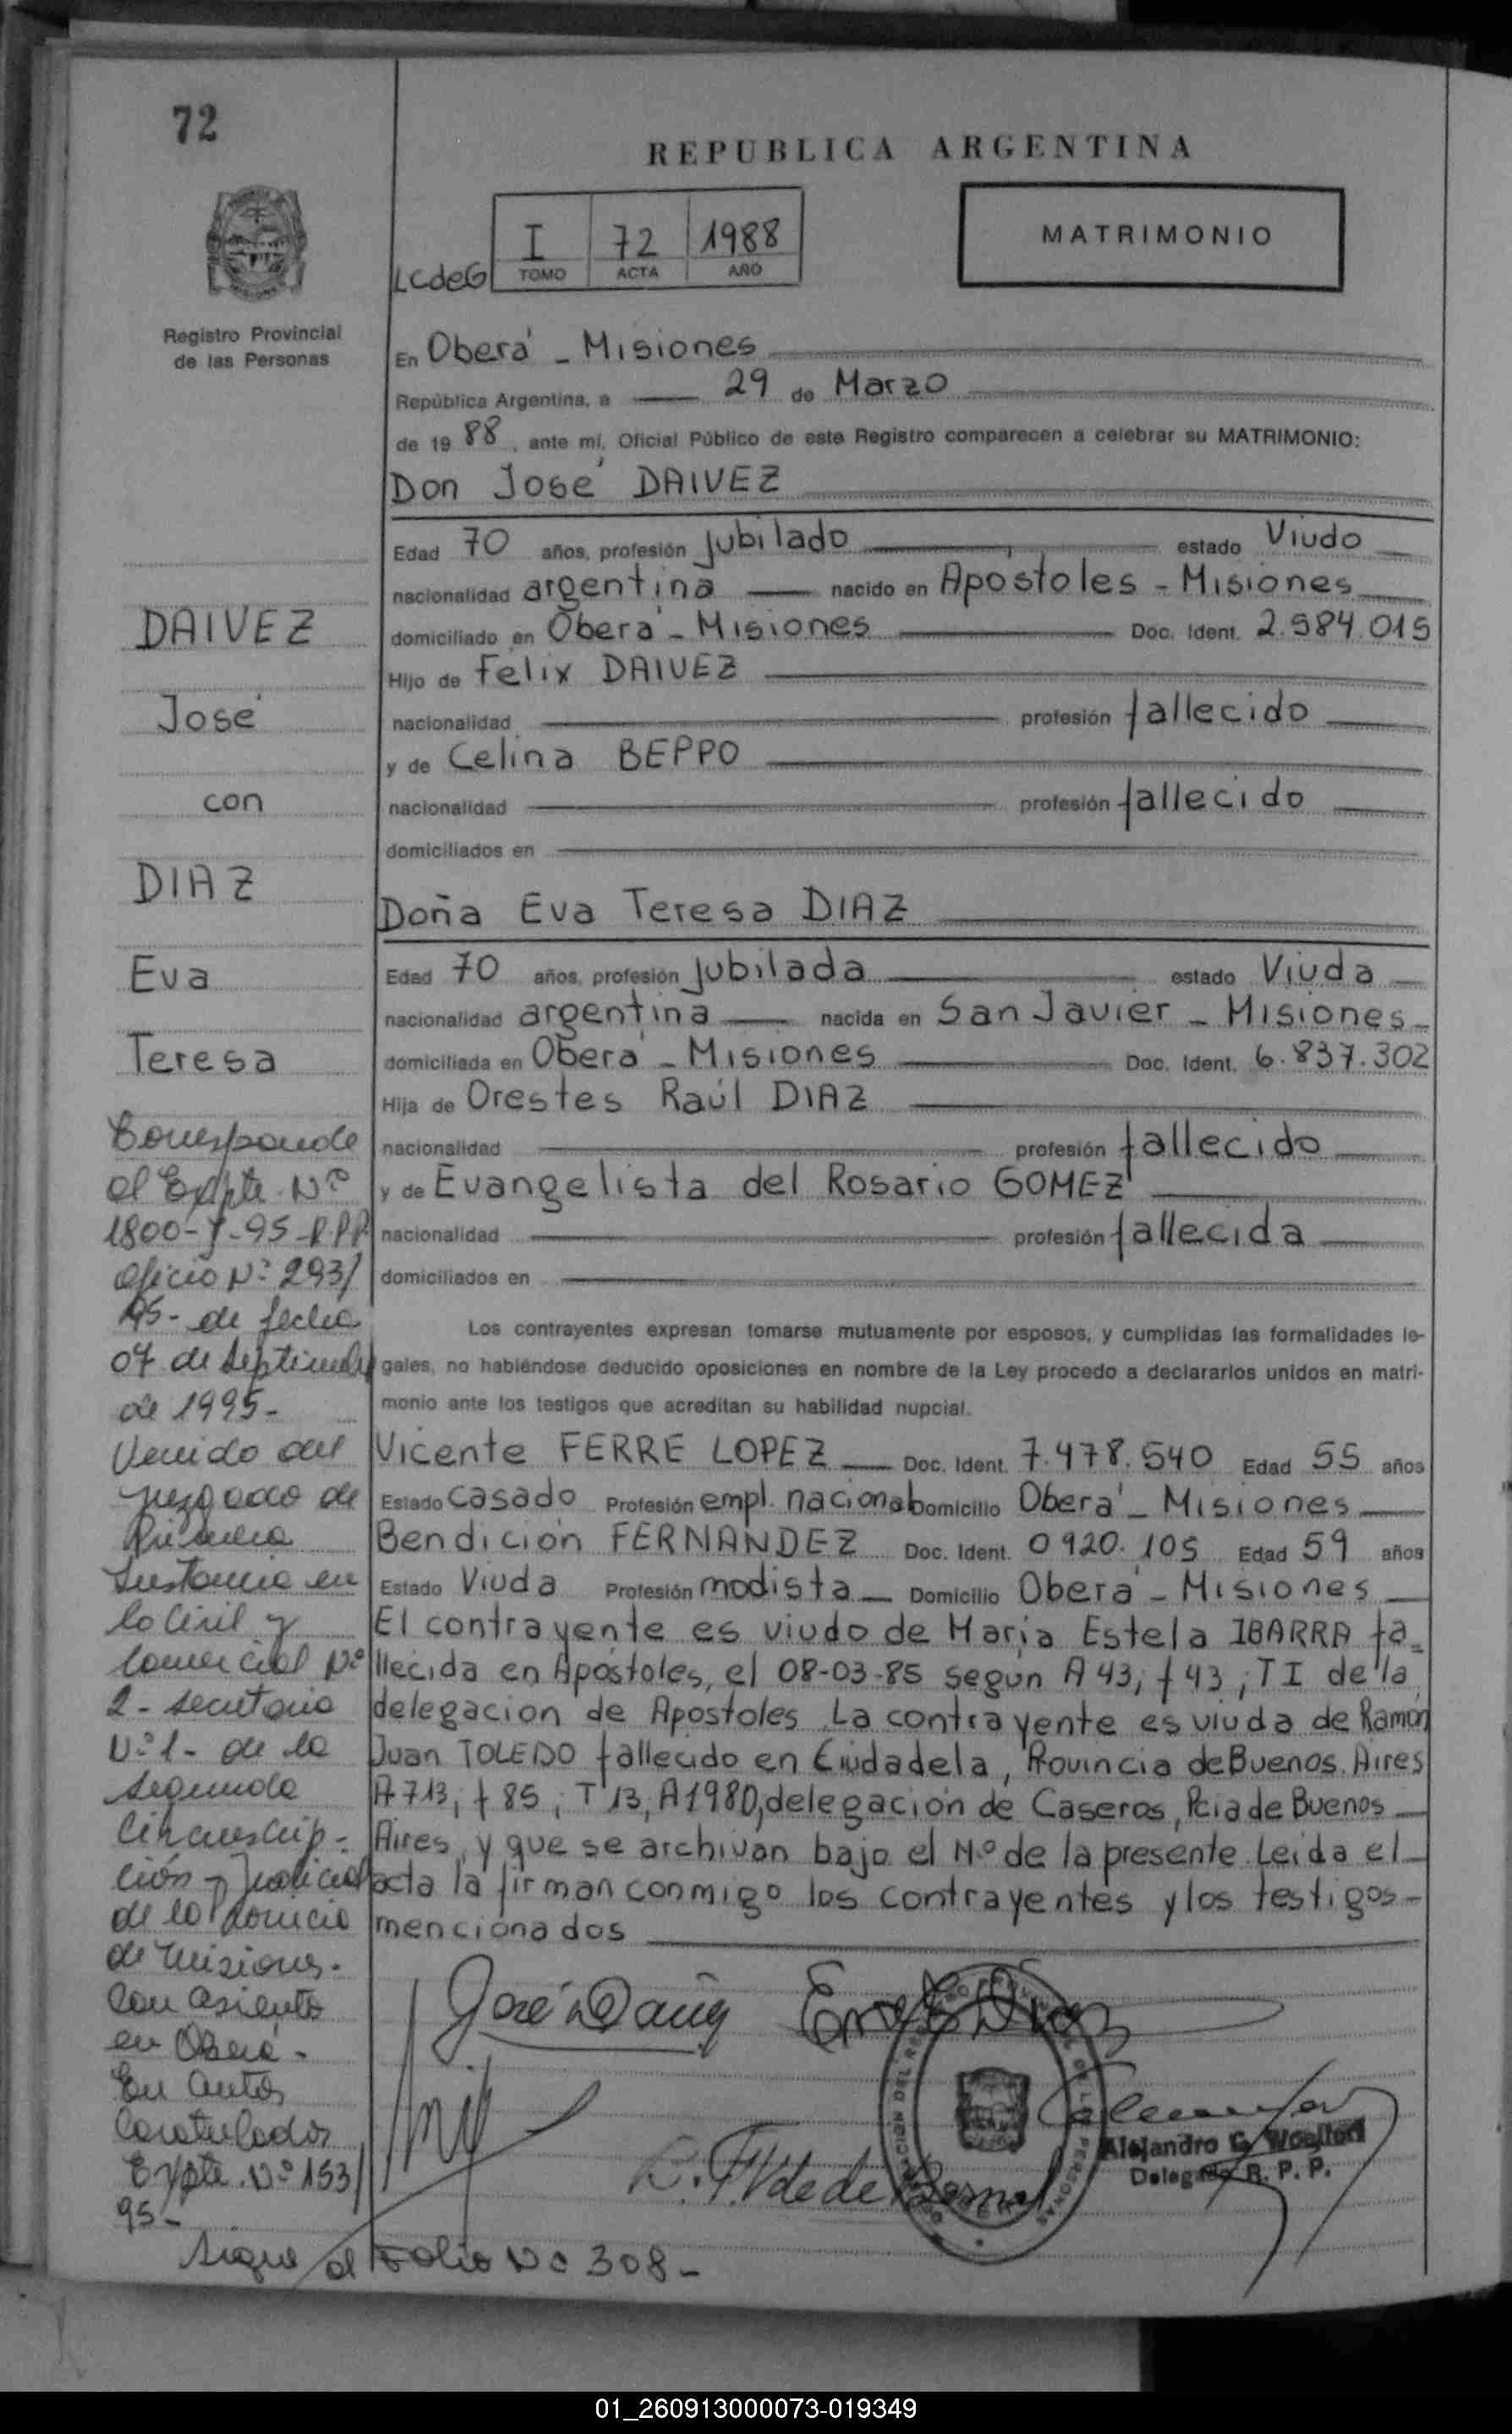 72
REPUBLICA ARGENTINA
I 72 1988
LCdeG TOMO ACTA AÑO
MATRIMONIO
Registro Provincial
de las Personas
En Oberá - Misiones
República Argentina, a 29 de Marzo
de 19 88, ante mí, Oficial Público de este Registro comparecen a celebrar su MATRIMONIO:
Don José DAIVEZ
Edad 70 años, profesión jubilado estado Viudo
nacionalidad argentina nacido en Apóstoles - Misiones
domiciliado en Oberá - Misiones Doc. Ident. 2.584.015
Hijo de Felix DAIVEZ
nacionalidad profesión fallecido
y de Celina BEPPO
nacionalidad profesión fallecido
domiciliados en
Doña Eva Teresa DIAZ
Edad 70 años, profesión jubilada estado Viuda
nacionalidad argentina nacida en San Javier - Misiones
domiciliada en Oberá - Misiones Doc. Ident. 6.837.302
Hija de Orestes Raúl DIAZ
nacionalidad profesión fallecido
y de Evangelista del Rosario GOMEZ
nacionalidad profesión fallecida
domiciliados en
Los contrayentes expresan tomarse mutuamente por esposos, y cumplidas las formalidades le-
gales, no habiéndose deducido oposiciones en nombre de la Ley procedo a declararlos unidos en matri-
monio ante los testigos que acreditan su habilidad nupcial.
Vicente FERRE LOPEZ Doc. Ident. 7.478.540 Edad 55 años
Estado casado Profesión empl. nacional Domicilio Oberá - Misiones
Bendición FERNANDEZ Doc. Ident. 0920.105 Edad 59 años
Estado Viuda Profesión modista Domicilio Oberá - Misiones
El contrayente es viudo de Maria Estela IBARRA fa-
llecida en Apóstoles, el 08-03-85 según A 43; f 43; T I de la
delegacion de Apostoles. La contrayente es viuda de Ramón
Juan TOLEDO fallecido en Ciudadela, Provincia de Buenos Aires
A 713; f 85; T 13, A 1980, delegación de Caseros, Pcia de Buenos
Aires, y que se archivan bajo el Nº de la presente. Leida el
acta la firman conmigo los contrayentes y los testigos
mencionados
DAIVEZ
José
con
DIAZ
Eva
Teresa
Corresponde
al Expte. Nº
1800-Y-95-R.P.P.
Oficio Nº 293/
95- de fecha
07 de Septiembre
de 1995-
Venido del
Juzgado de
Primera
Instancia en
lo Civil y
Comercial Nº
2- Secretaria
Nº 1- de la
Segunda
Circunscrip-
ción Judicial
de la Provincia
de Misiones.
Con asiento
en Oberá-
En autos
Caratulados
Expte. Nº 153/
95-
Sigue al Folio Nº 308-
Alejandro G.
Delegado R. P. P.
01_260913000073-019349